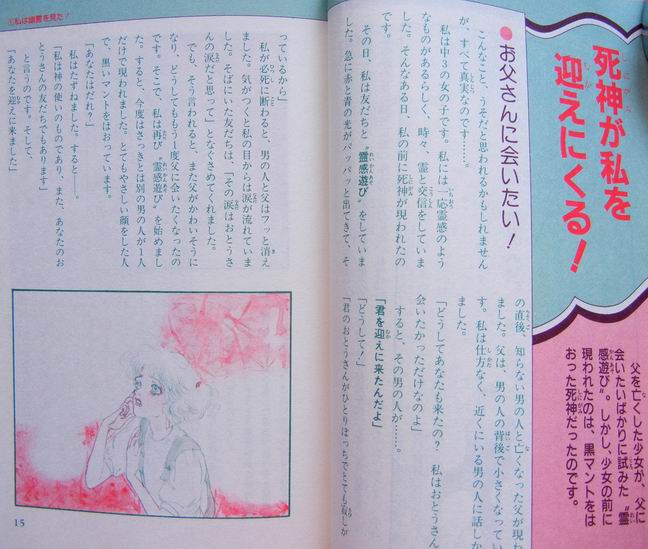 死神が私を
迎えにくる！
父を亡くした少女が、父に
会いたいばかりに試みた〝霊
感遊び〟。しかし、少女の前に
現われたのは、黒マントをは
おった死神だったのです。
●お父さんに会いたい！
こんなこと、うそだと思われるかもしれません
が、すべて真実なのです……。
私は中3の女の子です。私には一応霊感のよう
なものがあるらしく、時々、霊と交信をしていま
した。そんなある日、私の前に死神が現われたの
です。
その日、私は友だちと〝霊感遊び〟をしていま
した。急に赤と青の光がパッパッと出てきて、そ
の直後、知らない男の人と亡くなった父が現わ
ました。父は、男の人の背後で小さくなってい
す。私は仕方なく、近くにいる男の人に話しか
ました。
「どうしてあなたも来たの？　私はおとうさん
会いたかっただけなのよ」
すると、その男の人が……。
「君を迎えに来たんだよ」
「どうして！」
「君のおとうさんがひとりぼっちでとても寂しが
①私は幽霊を見た！
っているから」
私が必死に断わると、男の人と父はフッと消え
ました。気がつくと私の目からは涙が流れていま
した。そばにいた友だちは、「その涙はおとうさ
んの涙だと思って」となぐさめてくれました。
でも、そう言われると、また父がかわいそうに
なり、どうしてももう1度父に会いたくなったの
です。そこで、私は再び〝霊感遊び〟を始めまし
た。すると、今度はさっきとは別の男の人が1人
だけで現われました。とてもやさしい顔をした人
で、黒いマントをはおっています。
「あなたはだれ？」
私はたずねました。すると――。
「私は神の使いのものであり、また、あなたのお
とうさんの友だちでもあります」
と言うのです。そして、
「あなたを迎えに来ました」
15